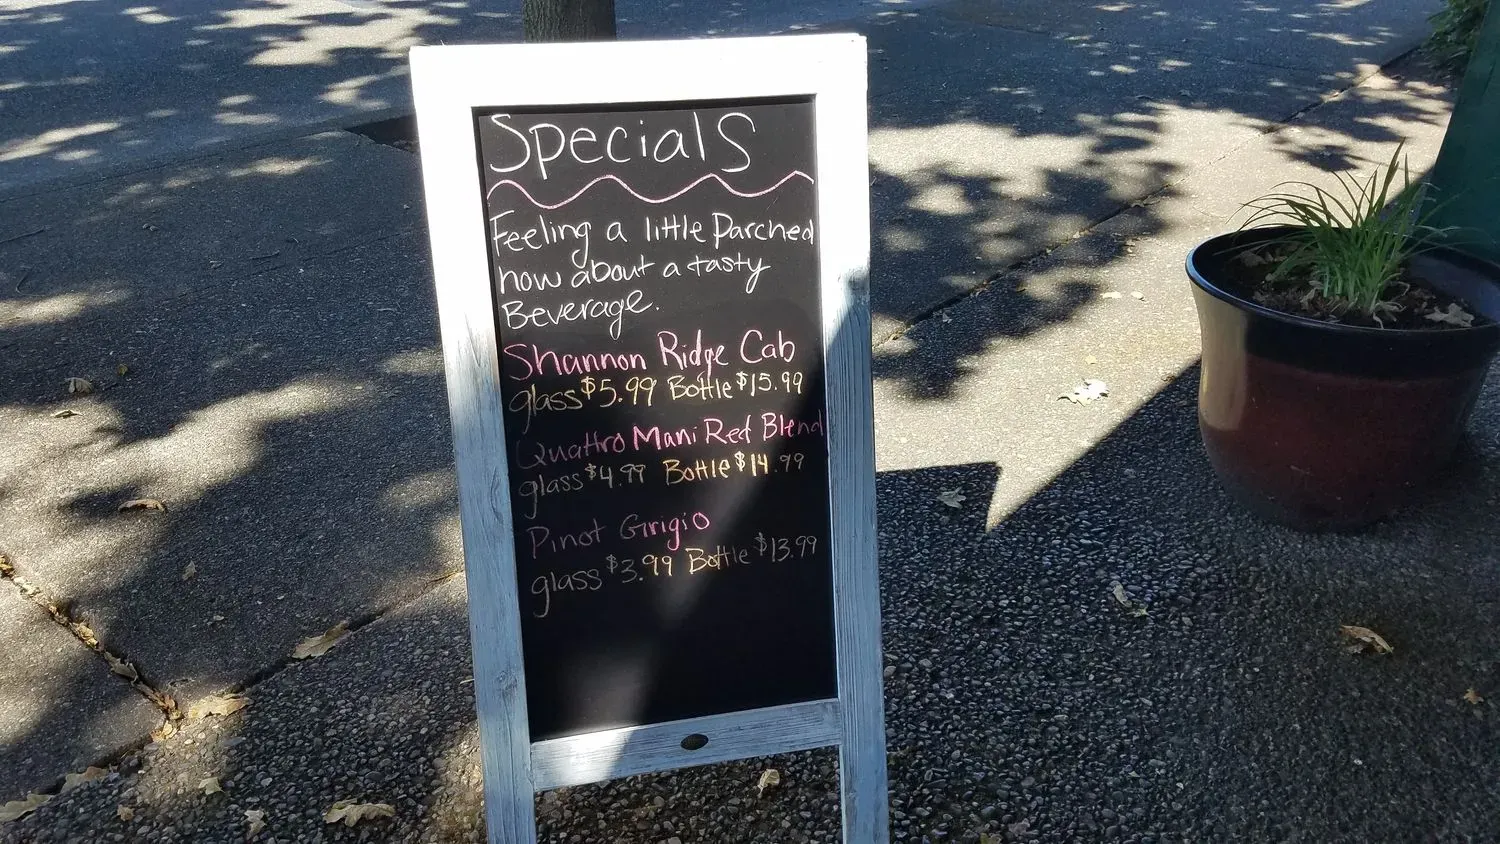 Specials
Feeling a little Parched
how about a tasty
Beverage.
Shannon Ridge Cab
glass $5.99 Bottle $15.99
Quattro Mani Red Blend
glass $4.99 Bottle $14.99
Pinot Grigio
glass $3.99 Bottle $13.99